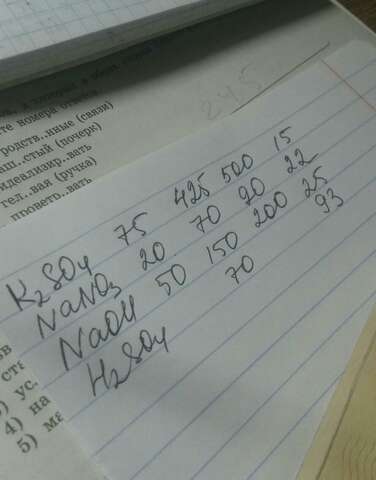 245
те номера ответ
родств..нные (связи)
ап..стый (почерк)
идеализир..вать
гел..вая (ручка)
проветр..вать
K2SO4 75 425 500 15
NaNO3 20 70 90 22
NaOH 50 150 200 25
H2SO4 70 93
ста
ус.
4) на
5) ма